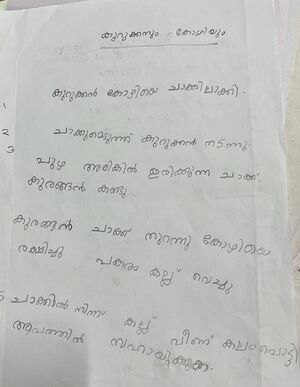 കുറുക്കനും കോഴിയും
1
കുറുക്കൻ കോഴിയെ ചാക്കിലാക്കി.
2
ചാക്കുമെടുത്ത് കുറുക്കൻ നടന്നു.
3
പുഴ അരികിൽ ഇരിക്കുന്ന ചാക്ക്.
കുരങ്ങൻ കണ്ടു.
കുരങ്ങൻ ചാക്ക് തുറന്നു കോഴിയെ
രക്ഷിച്ചു പകരം കല്ല് വെച്ചു
5 ചാക്കിൽ നിന്ന് കല്ല് വീണ് കലംപൊട്ടി
ആപത്തിൽ സഹായിക്കുക.